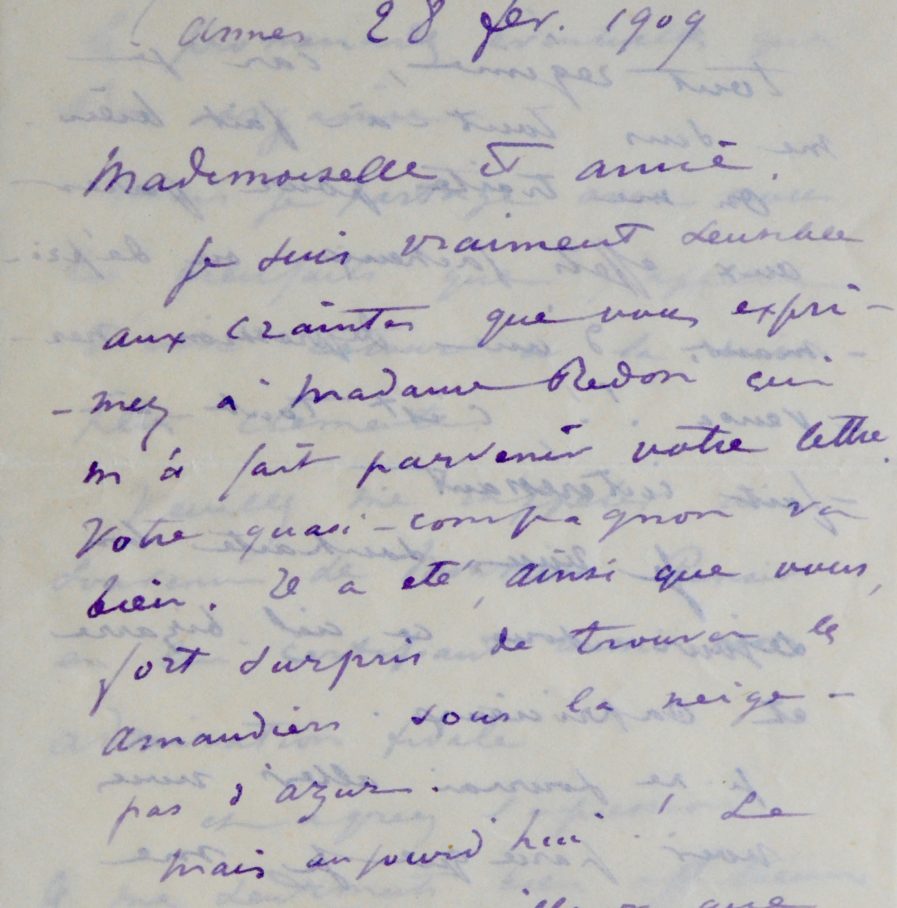 Cannes 28 fev. 1909
Mademoiselle et amie,
Je suis vraiment sensible
aux craintes que vous expri-
-mez à Madame Redon qui
m'a fait parvenir votre lettre.
Votre quasi-compagnon va
bien. Il a eté, ainsi que vous,
fort surpris de trouver les
amandiers sous la neige -
pas d'azur.
Mais aujourd'hui, Le
que